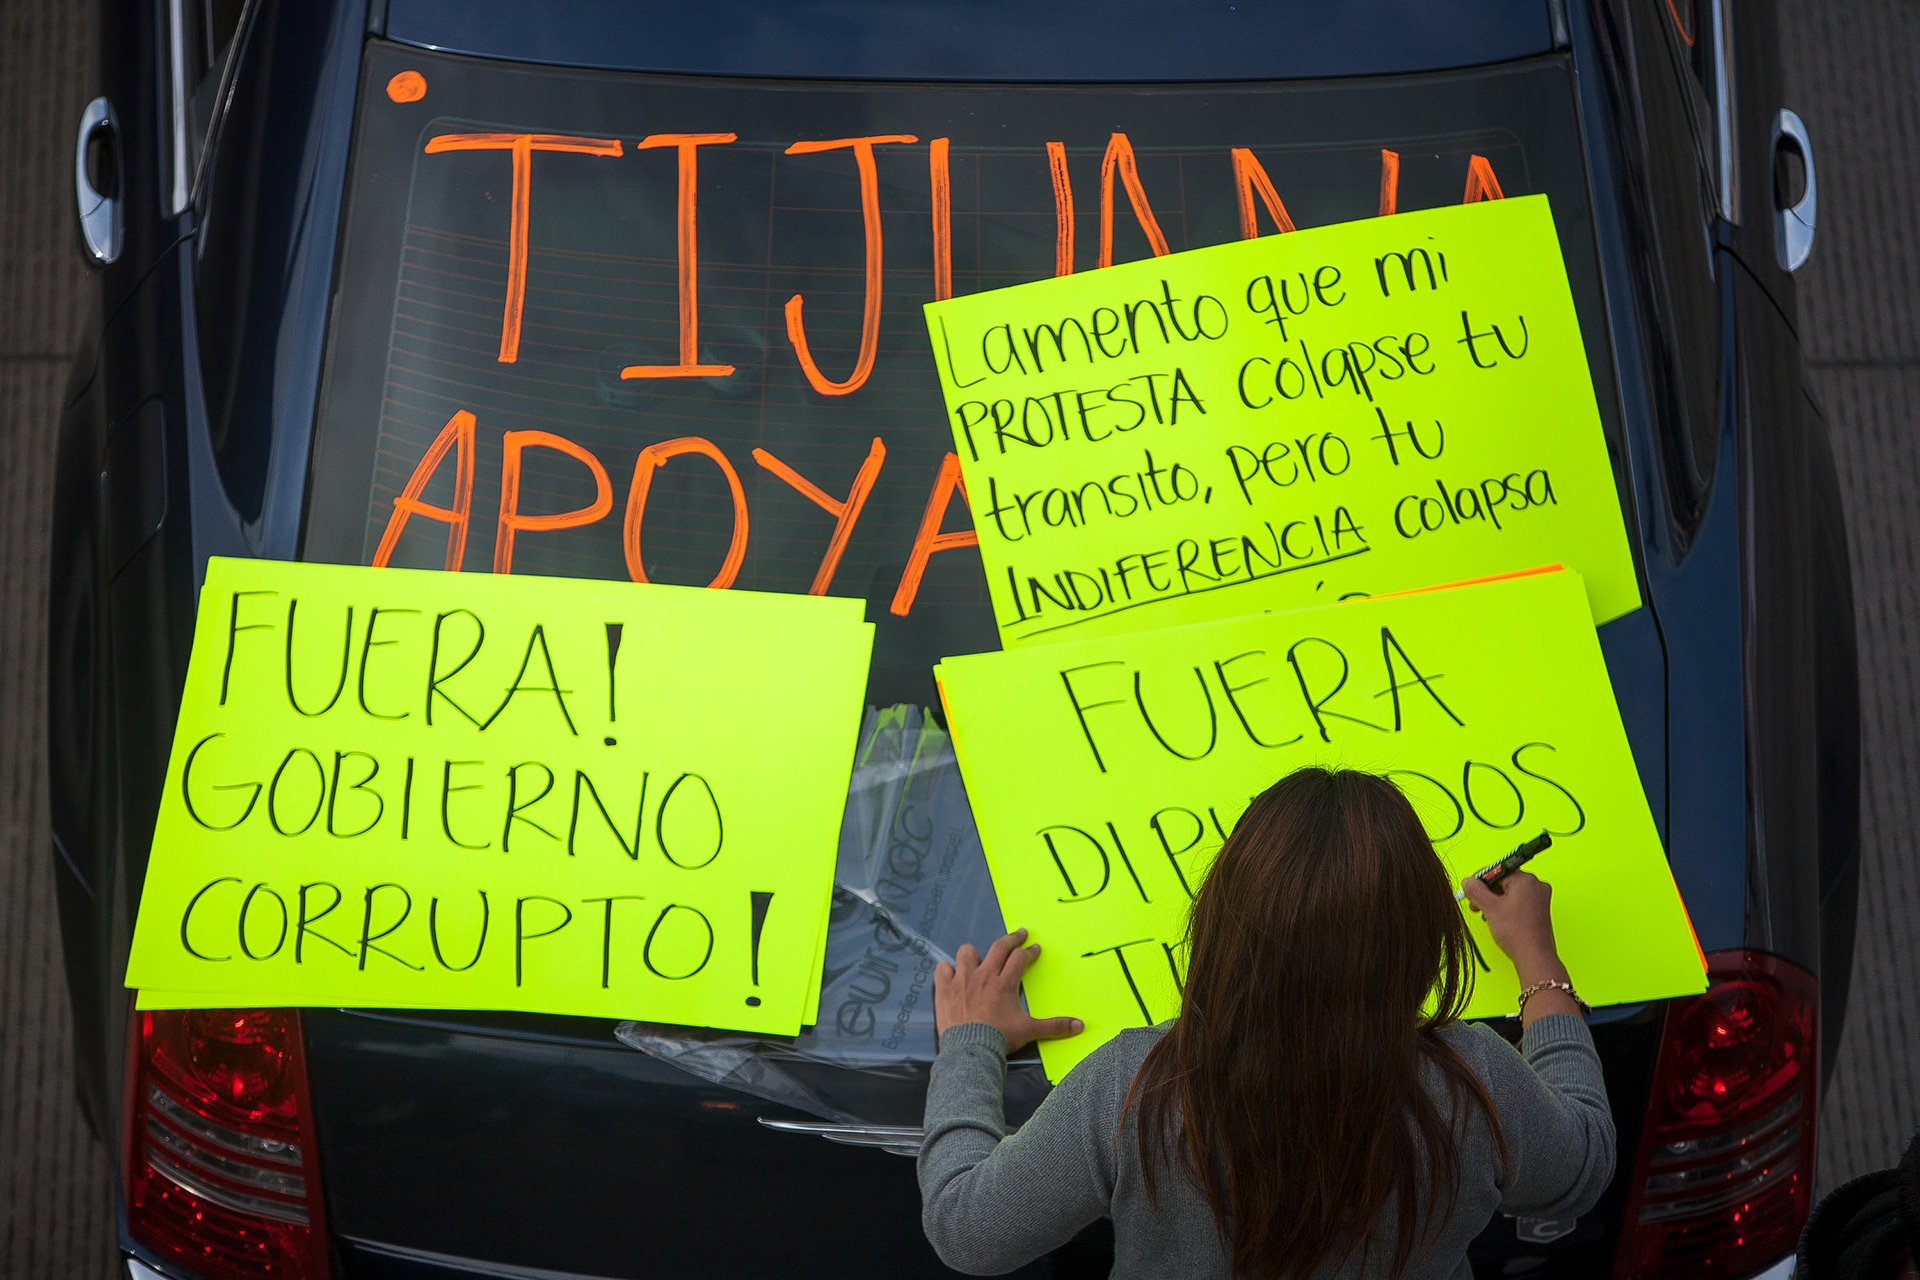 TIJUANA
APOYA
Lamento que mi
PROTESTA colapse tu
transito, pero tu
INDIFERENCIA colapsa
FUERA!
GOBIERNO
CORRUPTO!
FUERA
euromac